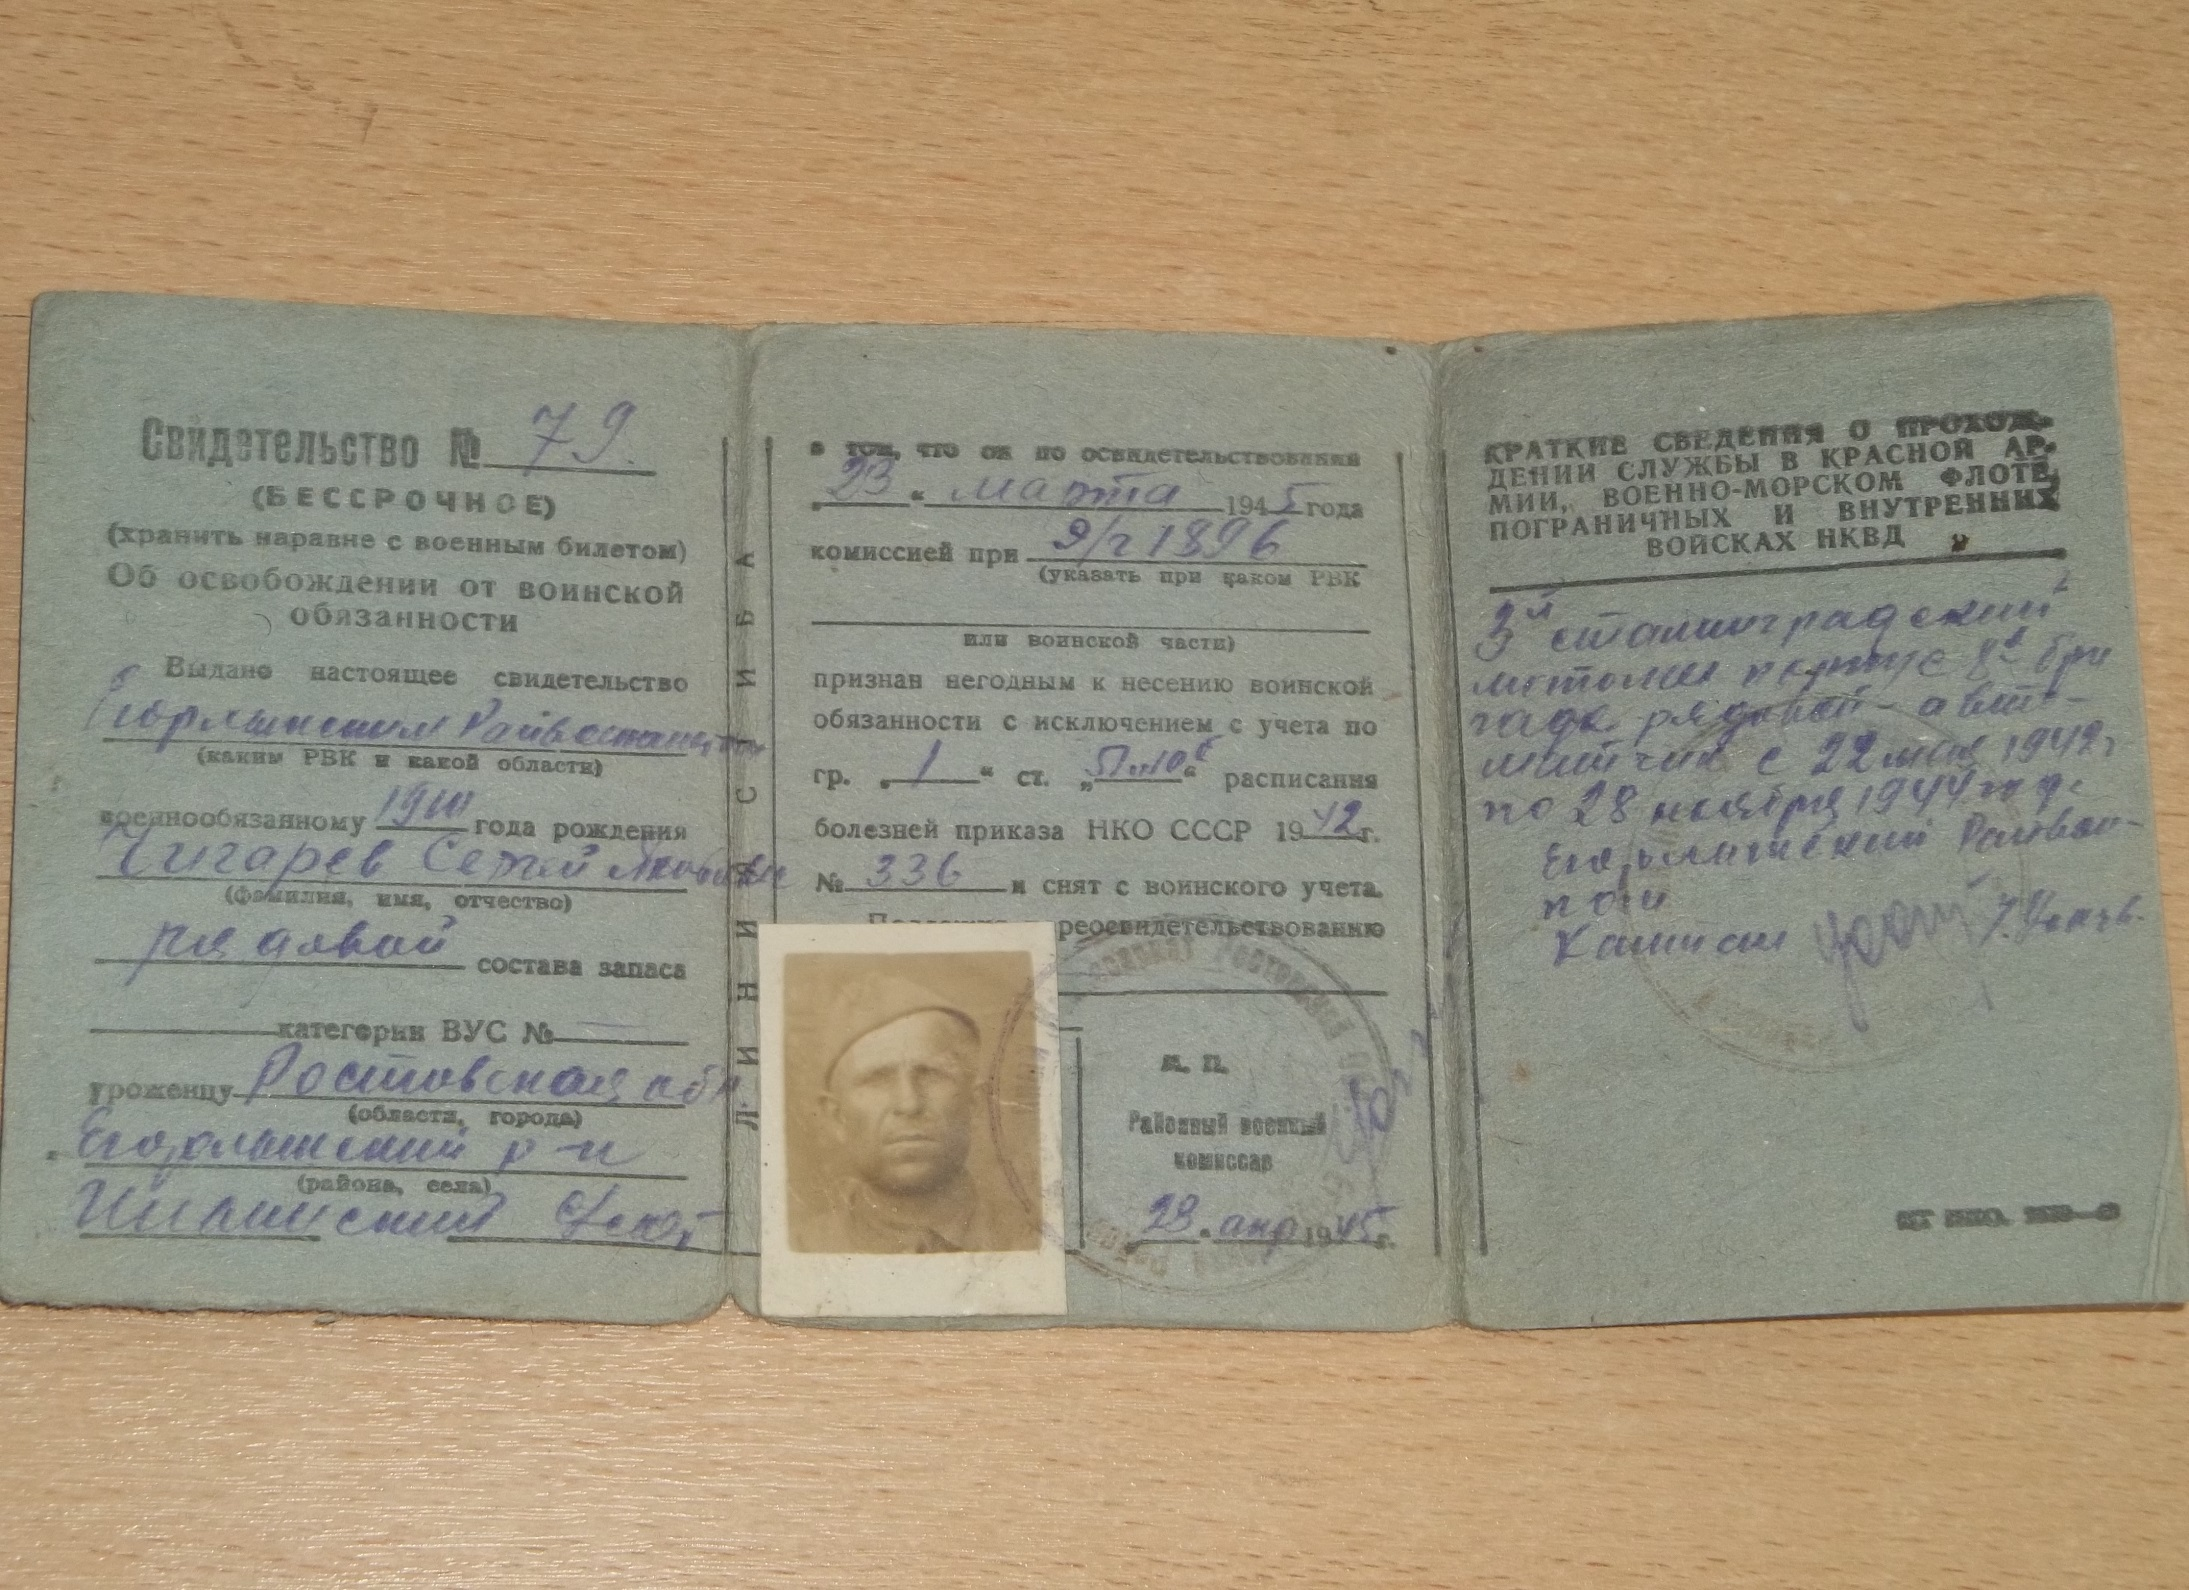 Свидетельство № 79
(БЕССРОЧНОЕ)
(хранить наравне с военным билетом)
Об освобождении от воинской
обязанности
Выдано настоящее свидетельство
(каким РВК и какой области)
военнообязанному 1910 года рождения
Чигарев Сергей
(фамилия, имя, отчество)
рядовой состава запаса
категории ВУС №
уроженцу Ростовская обл
(области, города)
Егорлыкский р-н
(района, села)
ЛИНИЯ СГИБА
в том, что он по освидетельствовании
„23“ марта 1945 года
комиссией при э/г 1896
(указать при каком РВК
или воинской части)
признан негодным к несению воинской
обязанности с исключением с учета по
гр. „1“ ст. расписания
болезней приказа НКО СССР 1942 г.
№ 336 и снят с воинского учета.
реосвидетельствованию
М. П.
Районный военный
комиссар
28. апр 1945 г.
КРАТКИЕ СВЕДЕНИЯ О ПРОХОЖ-
ДЕНИИ СЛУЖБЫ В КРАСНОЙ АР-
МИИ, ВОЕННО-МОРСКОМ ФЛОТЕ,
ПОГРАНИЧНЫХ И ВНУТРЕННИХ
ВОЙСКАХ НКВД
3й сталинградский
корпус 8я бри
гада рядовой - авто-
с 22 мая 1942
по 28 ноября 1944 год.
Егорлыкский Райвоен-
Капитан